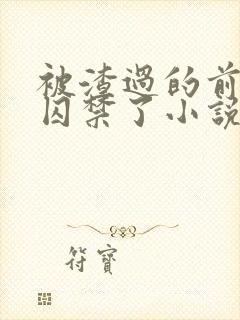 被渣過的前
囚禁了小説
符寶